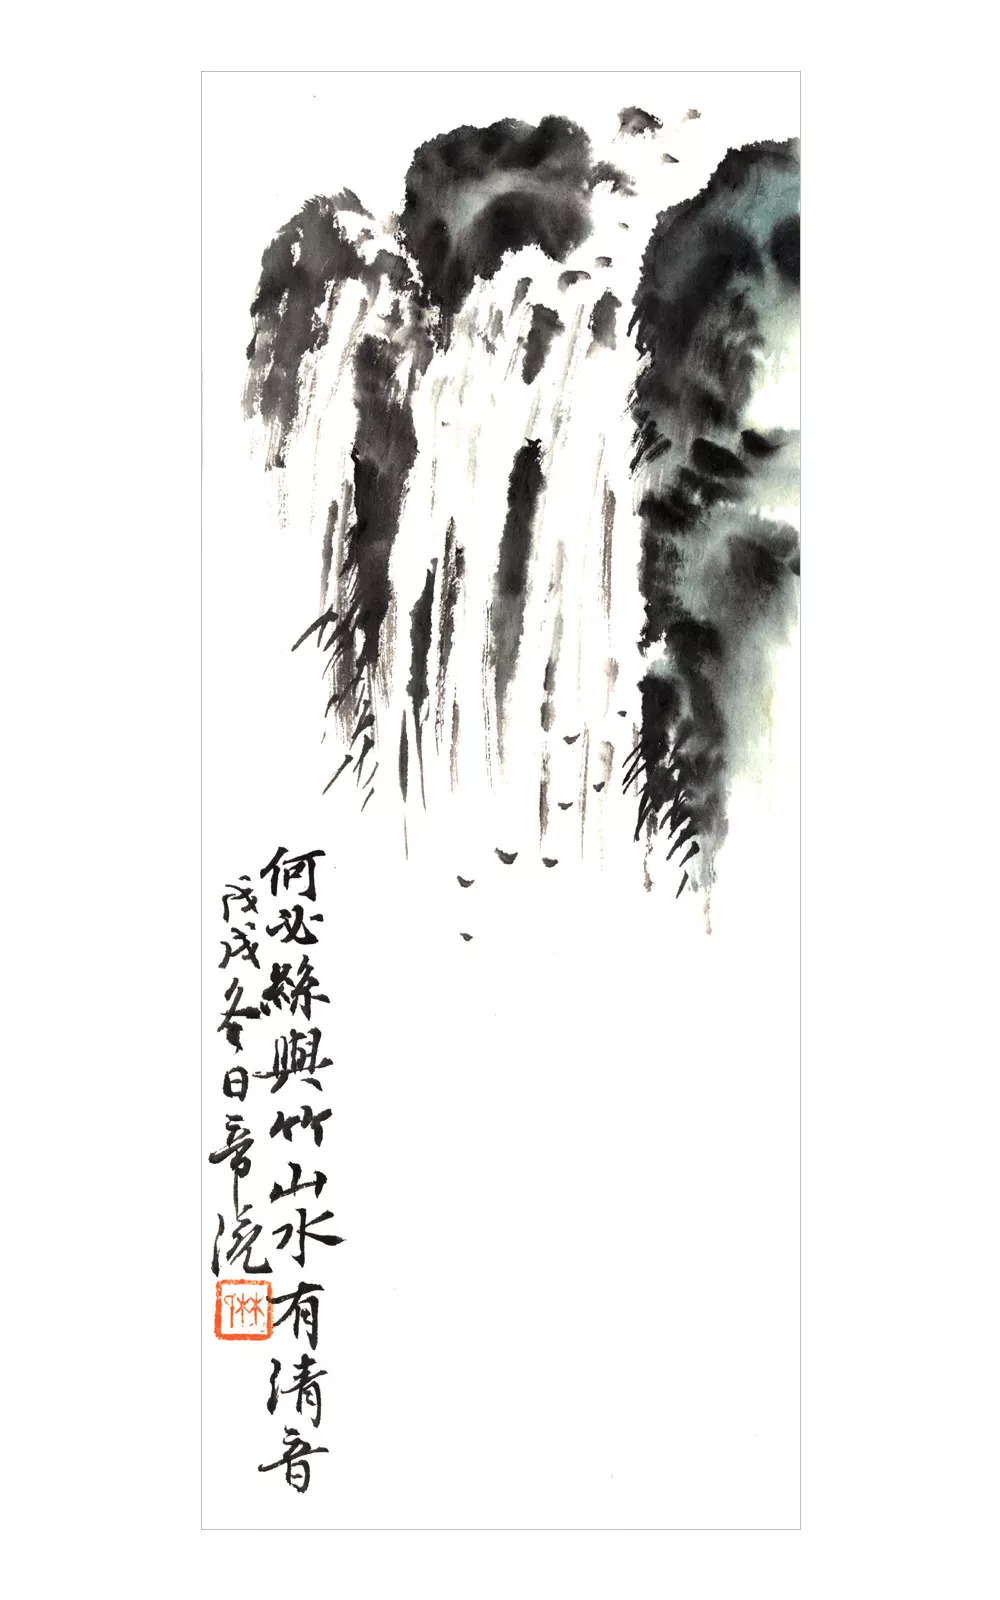 何必絲與竹山水有清音
戊戌冬日章浣